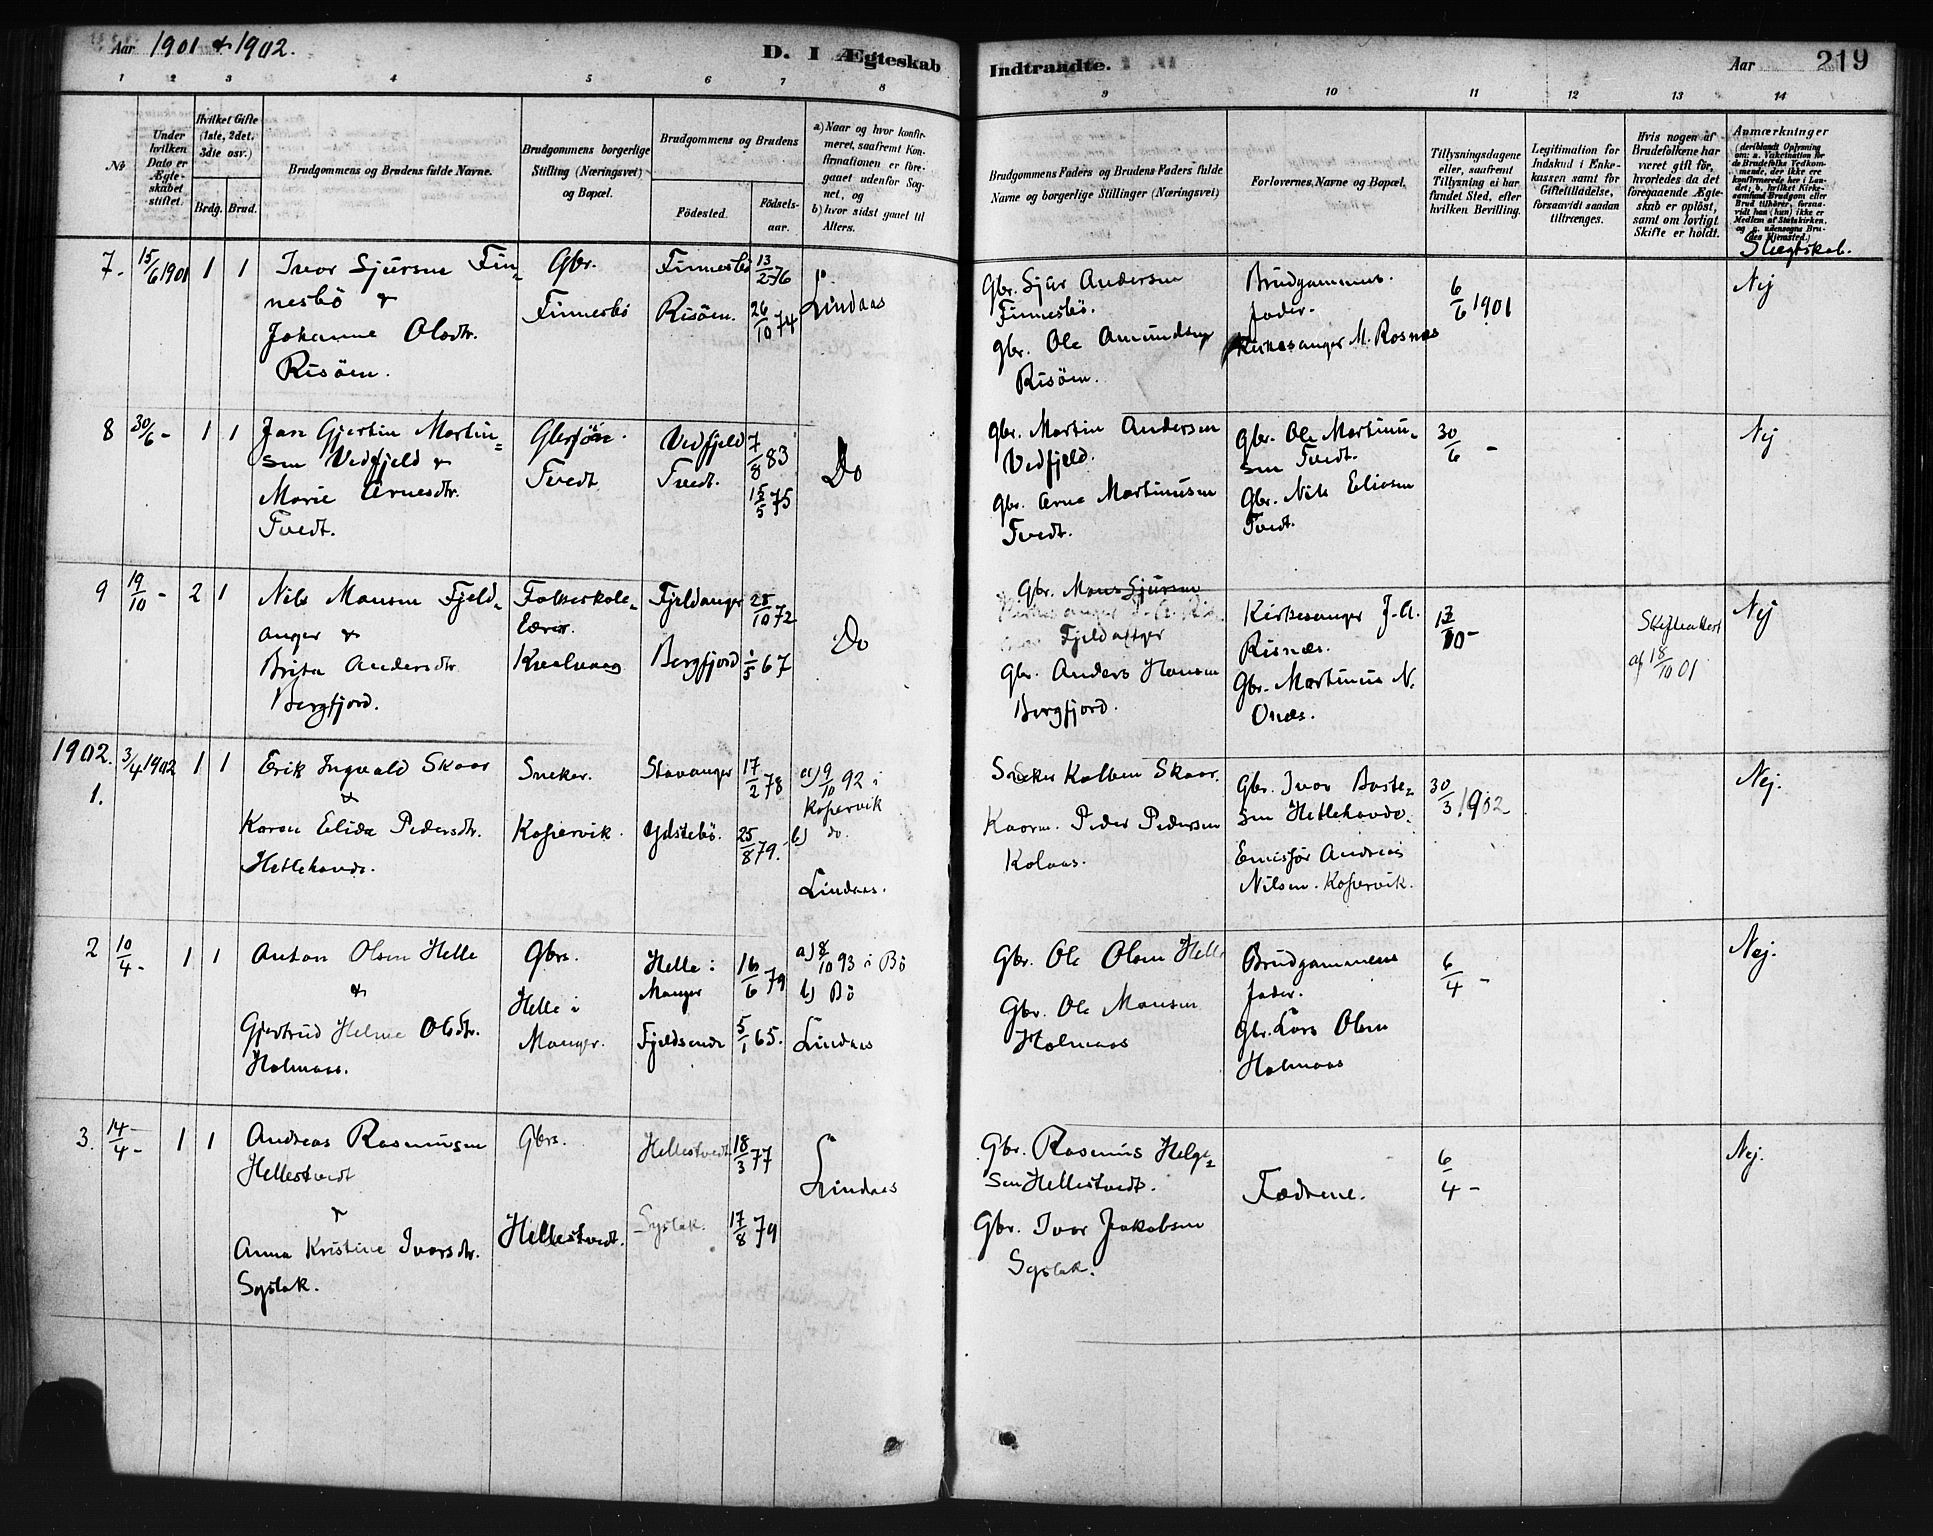 Aar 1901 & 1902.
D. I Ægteskab Indtraadte.
Aar 219
1 2 3 4 5 6 7 8 9 10 11 12 13 14
No
Under hvilken Dato er Ægteskabet stiftet.
Hvilket Gifte (1ste, 2det, 3die osv.)
Brdg. Brud.
Brudgommens og Brudens fulde Navne.
Brudgommens borgerlige Stilling (Næringsvei) og Bopæl.
Brudgommens og Brudens
Fødested. Fødselsaar.
a) Naar og hvor konfirmeret, saafremt Konfirmationen er foregaaet udenfor Sognet, og
b) hvor sidst gaaet til Alters.
Brudgommens Faders og Brudens Faders fulde Navne og borgerlige Stillinger (Næringsvei)
Forlovernes Navne og Bopæl.
Tillysningsdagene eller, saafremt Tillysning ei har fundet Sted, efter hvilken Bevilling.
Legitimation for Indskud i Enkekassen samt for Giftetilladelse, forsaavidt saadan tiltrænges.
Hvis nogen af Brudefolkene har været gift før, hvorledes da det foregaaende Ægteskab er opløst, samt om lovligt Skifte er holdt.
Anmærkninger
Slægtskab.
7. 15/6 1901 1 1
Ivor Sjursen Fin-
nesbö &
Johanne Olsdtr.
Risöen.
Gbr.
Finnesbö
Finnesbö 13/2 76
Risöen. 26/10 74
Lindaas
Gbr. Sjur Andersen
Finnesbö.
Gbr. Ole Amundsen
Risöen.
Brudgommens
fader.
Kirkesanger M. Rosnes
6/6 1901
Nej
8 30/6 - 1 1
Jan Gjertin Martin-
sen Vedfjeld &
Marie Arnesdtr.
Tvedt.
Tvedt
Vedfjeld 7/8 83
Tvedt. 15/5 75
Do
Gbr. Martin Andersen
Vedfjeld.
Gbr. Arne Martinusen
Tvedt.
Gbr. Ole Martinu-
sen Tvedt.
Gbr. Nils Eliasen
Tvedt.
30/6 -
Nej
9 19/10 - 2 1
Nils Monsen Fjeld-
anger &
Brita Andersdtr.
Bergfjord.
Folkeskole-
lærer.
Kvalvaag
Fjeldanger 28/10 72
Bergfjord 1/5 67
Do
Gbr. Mons Sjursen
Fjeldanger
Gbr. Anders Hansen
Bergfjord.
Kirkesanger J. A.
Risnæs.
Gbr. Martinus N.
Onæs.
13/10 -
Skifteattest
af 18/10 01
Nej
1902.
1. 3/4 1902 1 1
Erik Ingvald Skaar
&
Karen Elida Pedersdtr.
Hetlehovde.
Snekker.
Kopervik.
Stavanger 17/2 78
Ydstebö. 25/8 79.
a) 9/10 92 i
Kopervik
b) do.
Lindaas.
Snekker Kolben Skaar.
Kaarm. Peder Pedersen
Kolaas.
Gbr. Ivar Baste-
sen Hetlehovde.
Emisför Andreas
Nilsen. Kopervik.
30/3 1902
Nej.
2 10/4 - 1 1
Anton Olsen Helle
&
Gjertrud Helene Olsdtr.
Holmaas.
Gbrs.
Helle i
Manger.
Helle i
Manger 16/6 79
Fjeldsende 5/1 65.
a) 8/10 93 i Bö
b) Bö
Lindaas
Gbr. Ole Olsen Helle
Gbr. Ole Monsen
Holmaas
Brudgommens
fader.
Gbr. Lars Olsen
Holmaas
6/4 -
Nej.
3. 14/4 - 1 1
Andreas Rasmussen
Hellestvedt
&
Anna Kristine Ivarsdtr.
Syslak.
Gbrs.
Hellestvedt.
Hellestvedt 18/3 77
Syslak. 17/8 79
Lindaas
Gbr. Rasmus Helge-
sen Hellestvedt.
Gbr. Ivar Jakobsen
Syslak.
Fædrene.
6/4 -
Nej.